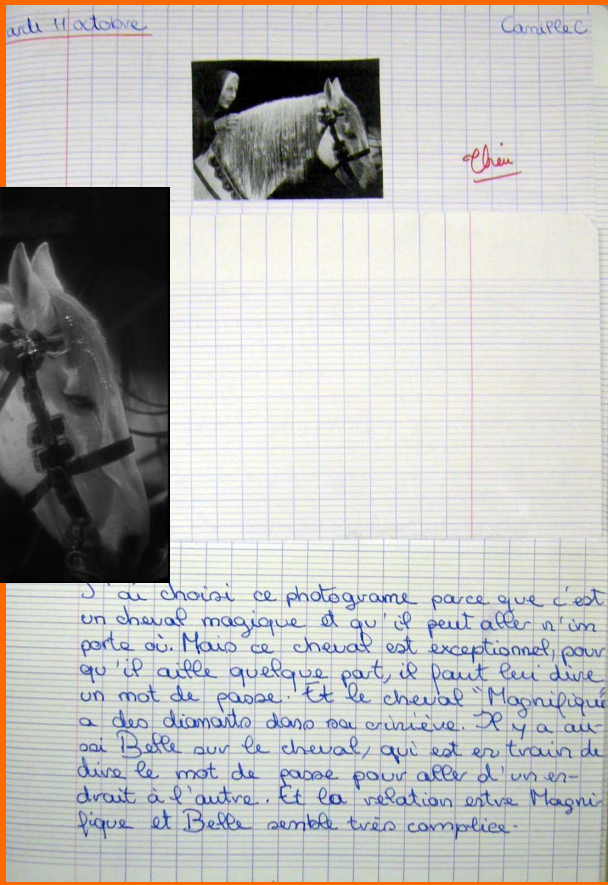 ardi 11 octobre
Camille C
J'ai choisi ce photograme parce que c'est
un cheval magique et qu'il peut aller n'im
porte où. Mais ce cheval est exceptionnel, pour
qu'il aille quelque part, il faut lui dire
un mot de passe. Et le cheval "Magnifique"
a des diamants dans sa crinière. Il y a au-
ssi Belle sur le cheval, qui est en train de
dire le mot de passe pour aller d'un en-
droit à l'autre. Et la relation entre Magni-
fique et Belle semble très complice.